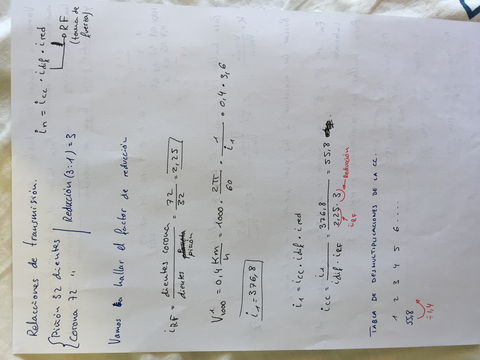 Relaciones de transmisión.
Piñón 32 dientes
Corona 72 "
Reducción (3:1) = 3
in = icc · idif · ired
RF
(toma de fuerza)
Vamos hallar el factor de reducción
iRF = dientes corona / dientes piñón = 72 / 32 = 2,25
V1000 = 0,4 Km/h = 1000 · 2π/60 · 1/i1 · 0,4 · 3,6
i1 = 376,8
i1 = icc · idif · ired
icc = i1 / idif · iRF = 376,8 / 2,25 · 3 = 55,8
iRF
Reducción
TABLA DE DESMULTIPLICACIONES DE LA CC.
1 2 3 4 5 6 .....
55,8
÷1,4